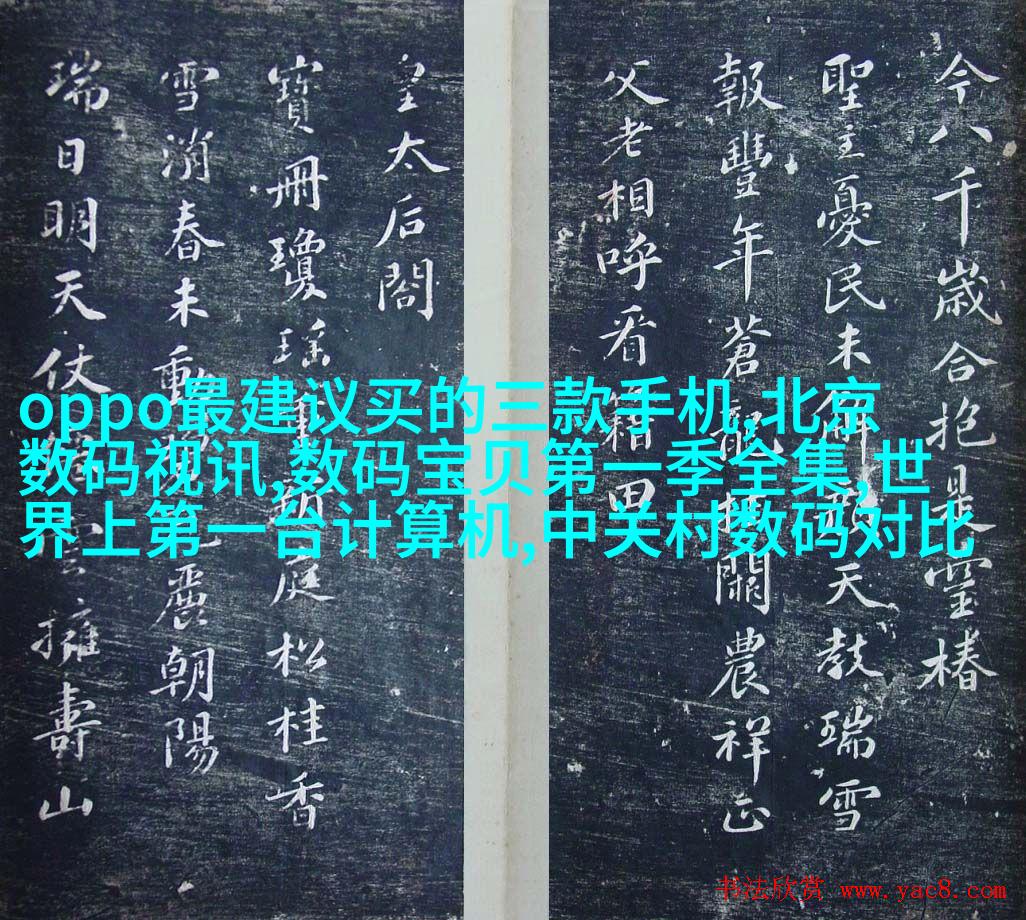 今八千歲合抱是靈椿
聖主憂民未解顏天教瑞雪
報豐年蒼龍掛闕農祥正
父老相呼看籍田
皇太后閤
寶冊瓊瑤重新庭松桂香
雪消春未動碧瓦麗朝陽
瑞日明天仗仙雲擁壽山
oppo最建议买的三款手机,北京
数码视讯,数码宝贝第一季全集,世
界上第一台计算机,中关村数码对比
书法欣赏 www.yac8.com